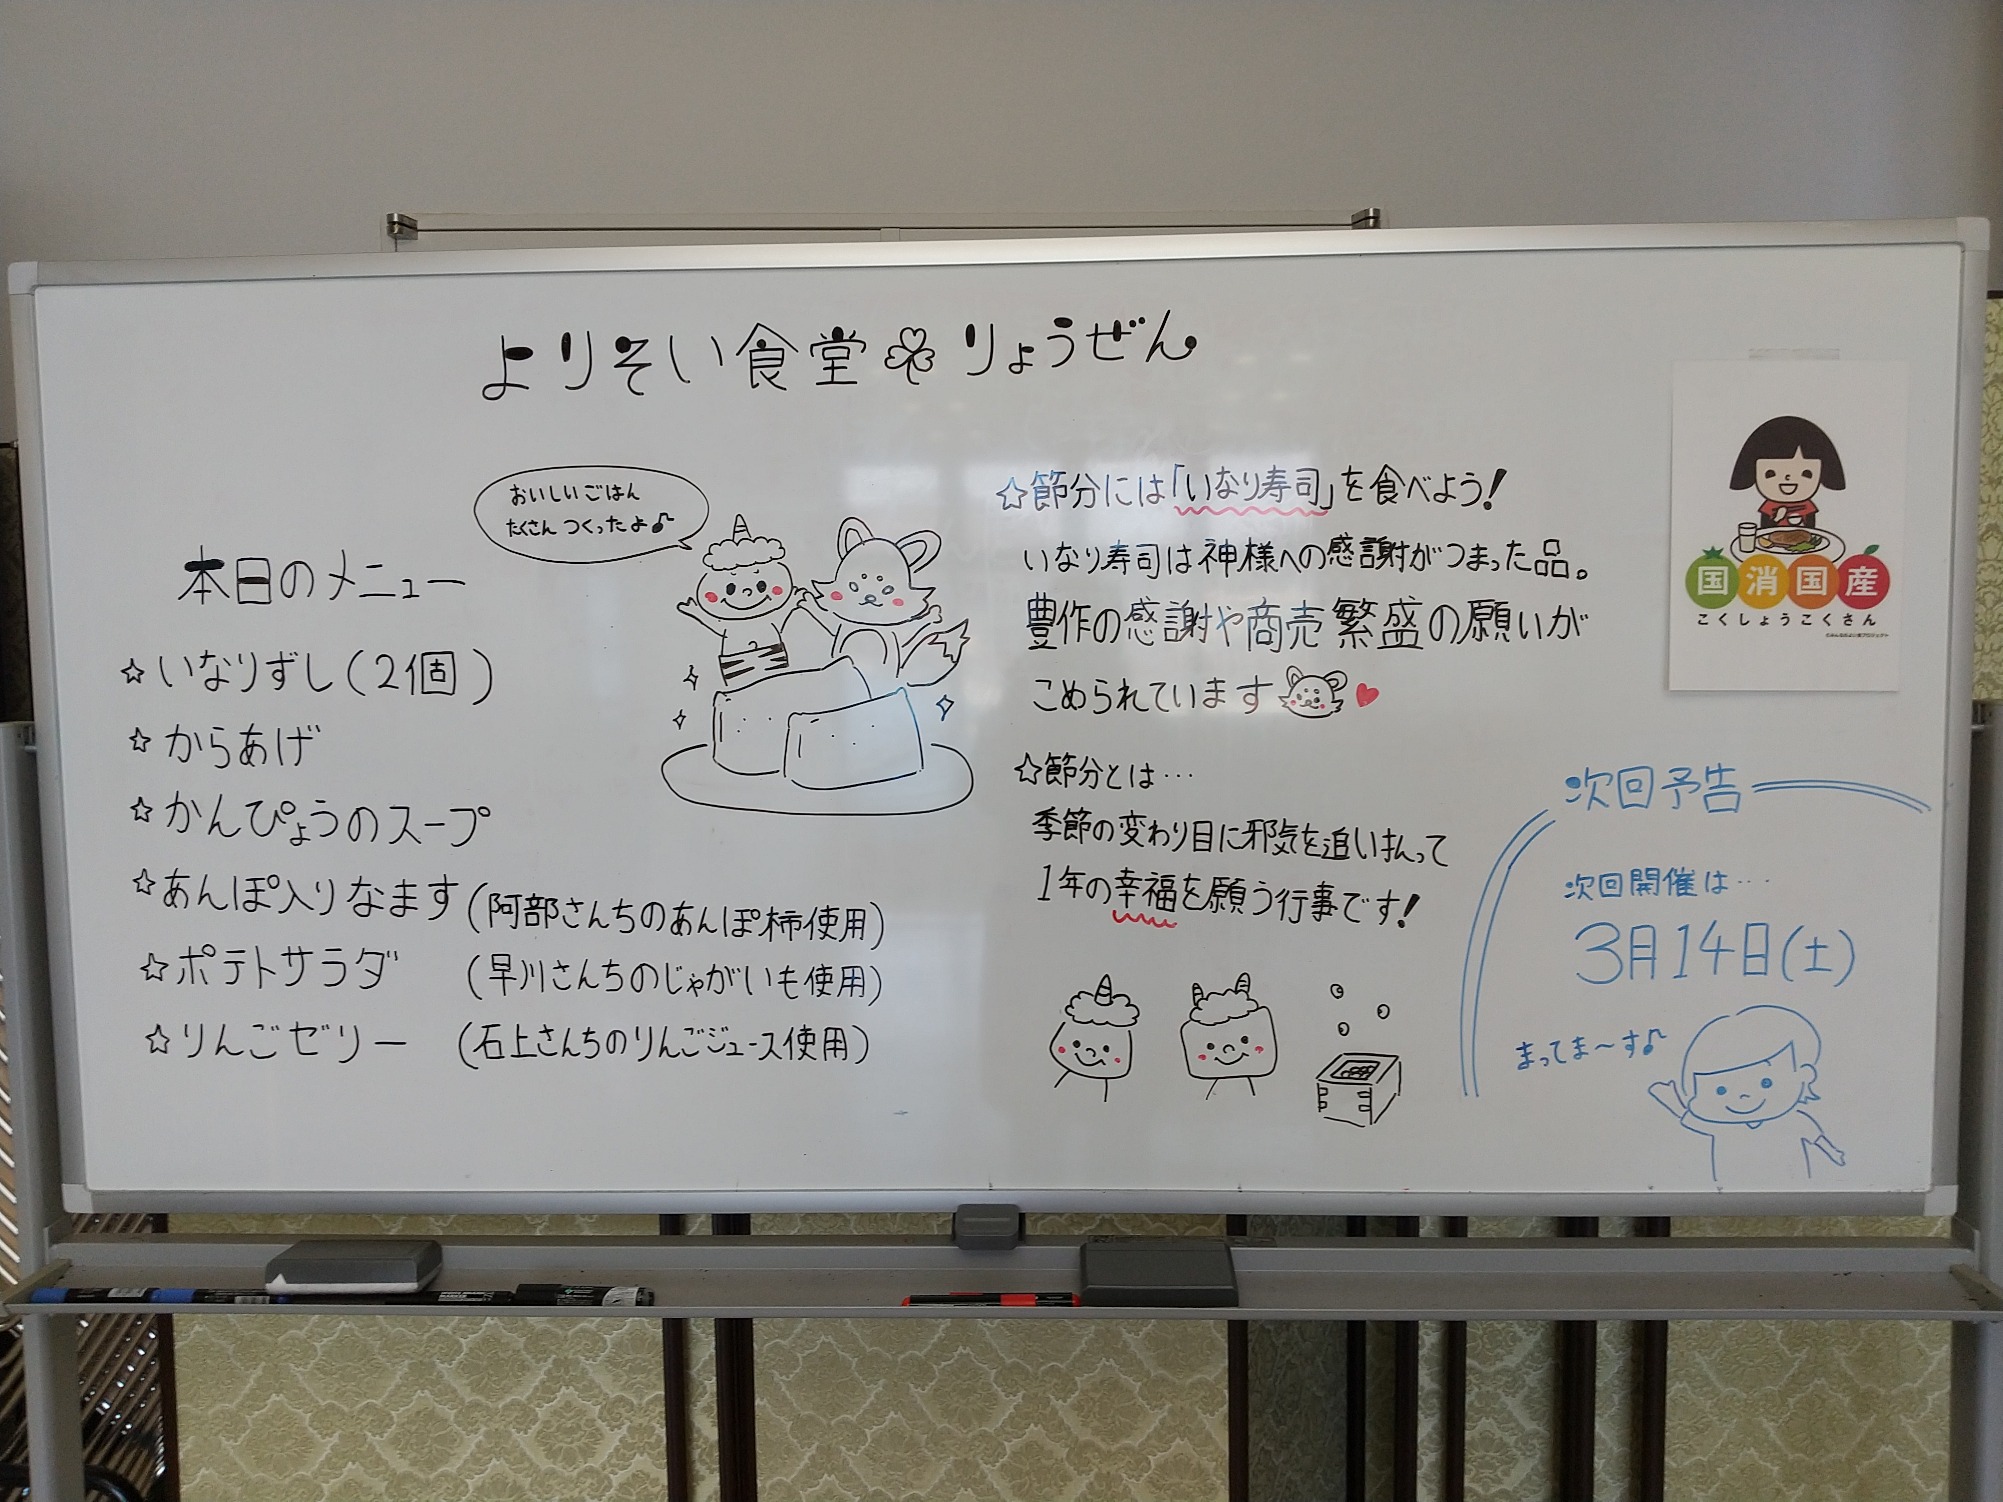 よりそい食堂りょうぜん
おいしいごはん
たくさんつくったよ♪
本日のメニュー
☆いなりずし(2個)
☆からあげ
☆かんぴょうのスープ
☆あんぽ入りなます(阿部さんちのあんぽ柿使用)
☆ポテトサラダ (早川さんちのじゃがいも使用)
☆りんごゼリー (石上さんちのりんごジュース使用)
☆節分には「いなり寿司」を食べよう!
いなり寿司は神様への感謝がつまった品。
豊作の感謝や商売繁盛の願いが
こめられています
☆節分とは…
季節の変わり目に邪気を追い払って
1年の幸福を願う行事です!
国消国産
こくしょうこくさん
次回予告
次回開催は…
3月14日(土)
まってま〜す♪